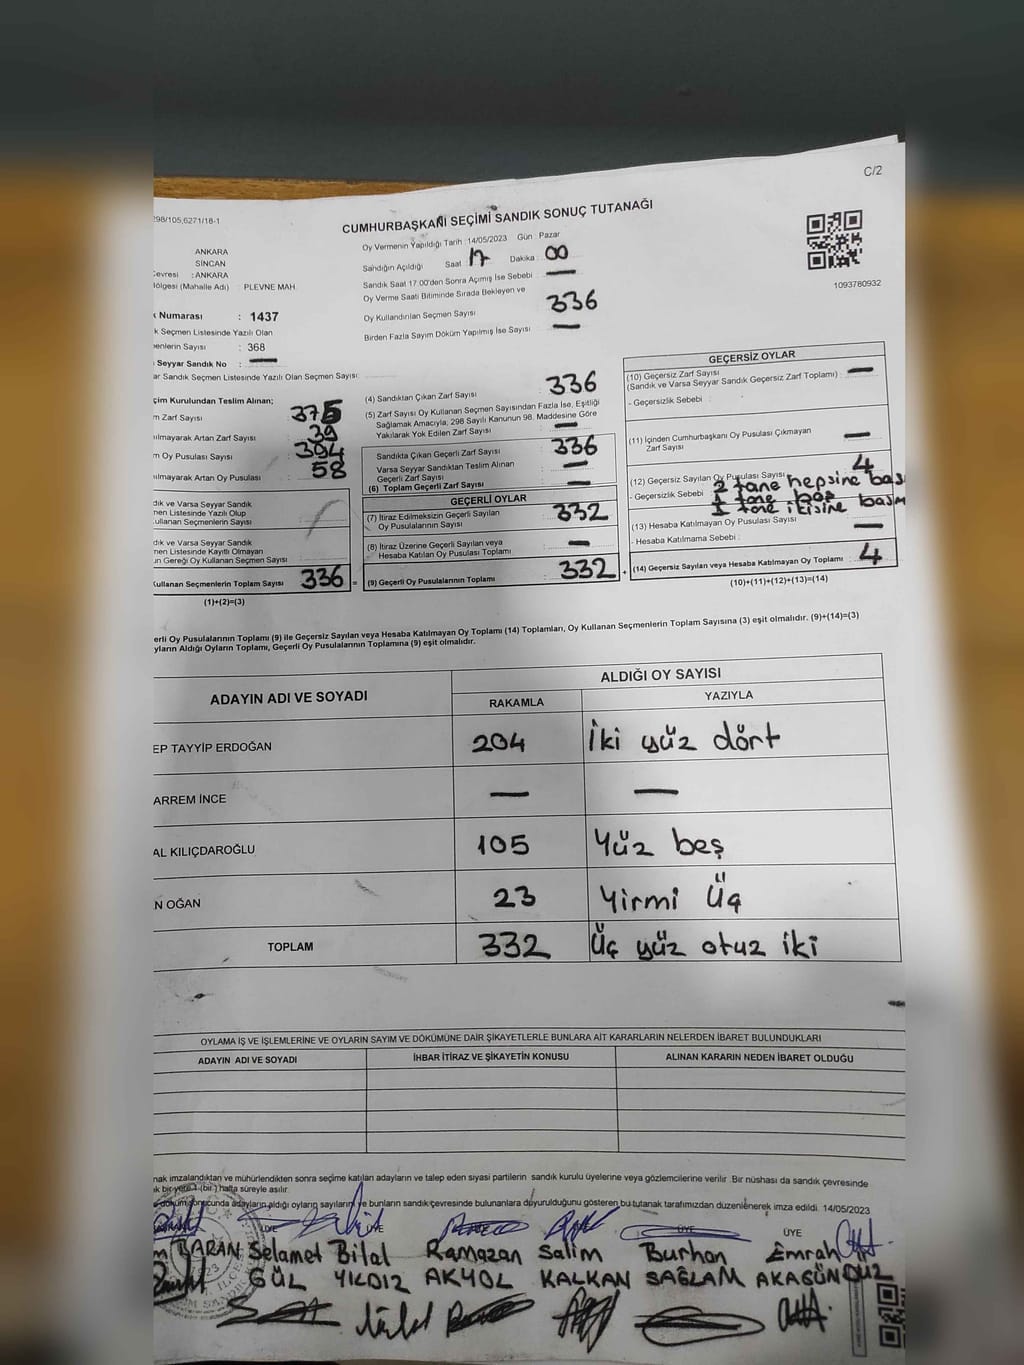 C/2
298/105,6271/18-1
CUMHURBAŞKANI SEÇİMİ SANDIK SONUÇ TUTANAĞI
Oy Vermenin Yapıldığı Tarih : 14/05/2023 Gün : Pazar
ANKARA
SİNCAN
: ANKARA
(Mahalle Adı) : PLEVNE MAH.
Sandığın Açıldığı Saat 17 Dakika : 00
Sandık Saat 17:00'den Sonra Açımış İse Sebebi
Oy Verme Saati Bitiminde Sırada Bekleyen ve
Oy Kullandırılan Seçmen Sayısı 336
Birden Fazla Sayım Döküm Yapılmış İse Sayısı —
1093780932
Numarası : 1437
Seçmen Listesinde Yazılı Olan
Sayısı : 368
Seyyar Sandık No : —
Sandık Seçmen Listesinde Yazılı Olan Seçmen Sayısı:
Kurulundan Teslim Alınan;
Zarf Sayısı 375
Artan Zarf Sayısı : 39
Oy Pusulası Sayısı 394
Artan Oy Pusulası : 58
ve Varsa Seyyar Sandık
Listesinde Yazılı Olup
Seçmenlerin Sayısı
ve Varsa Seyyar Sandık
Listesinde Kayıtlı Olmayan
Gereği Oy Kullanan Seçmen Sayısı
Kullanan Seçmenlerin Toplam Sayısı 336 =
(1)+(2)=(3)
(4) Sandıktan Çıkan Zarf Sayısı 336
(5) Zarf Sayısı Oy Kullanan Seçmen Sayısından Fazla İse, Eşitliği
Sağlamak Amacıyla, 298 Sayılı Kanunun 98. Maddesine Göre
Yakılarak Yok Edilen Zarf Sayısı —
Sandıkta Çıkan Geçerli Zarf Sayısı 336
Varsa Seyyar Sandıktan Teslim Alınan
Geçerli Zarf Sayısı —
(6) Toplam Geçerli Zarf Sayısı —
GEÇERLİ OYLAR
(7) İtiraz Edilmeksizin Geçerli Sayılan
Oy Pusulalarının Sayısı : 332
(8) İtiraz Üzerine Geçerli Sayılan veya
Hesaba Katılan Oy Pusulası Toplamı : —
(9) Geçerli Oy Pusulalarının Toplamı : 332 +
GEÇERSİZ OYLAR
(10) Geçersiz Zarf Sayısı
(Sandık ve Varsa Seyyar Sandık Geçersiz Zarf Toplamı) : —
- Geçersizlik Sebebi :
(11) İçinden Cumhurbaşkanı Oy Pusulası Çıkmayan
Zarf Sayısı : —
(12) Geçersiz Sayılan Oy Pusulası Sayısı : 4
- Geçersizlik Sebebi : 2 tane hepsine bas
1 tane boş
1 tane ikisine basm
(13) Hesaba Katılmayan Oy Pusulası Sayısı : —
- Hesaba Katılmama Sebebi :
(14) Geçersiz Sayılan veya Hesaba Katılmayan Oy Toplamı : 4
(10)+(11)+(12)+(13)=(14)
Oy Pusulalarının Toplamı (9) ile Geçersiz Sayılan veya Hesaba Katılmayan Oy Toplamı (14) Toplamları, Oy Kullanan Seçmenlerin Toplam Sayısına (3) eşit olmalıdır. (9)+(14)=(3)
Aldığı Oyların Toplamı, Geçerli Oy Pusulalarının Toplamına (9) eşit olmalıdır.
ADAYIN ADI VE SOYADI ALDIĞI OY SAYISI
RAKAMLA YAZIYLA
EP TAYYİP ERDOĞAN 204 İki yüz dört
ARREM İNCE — —
AL KILIÇDAROĞLU 105 Yüz beş
N OĞAN 23 Yirmi Üç
TOPLAM 332 Üç yüz otuz iki
OYLAMA İŞ VE İŞLEMLERİNE VE OYLARIN SAYIM VE DÖKÜMÜNE DAİR ŞİKAYETLERLE BUNLARA AİT KARARLARIN NELERDEN İBARET BULUNDUKLARI
ADAYIN ADI VE SOYADI İHBAR İTİRAZ VE ŞİKAYETİN KONUSU ALINAN KARARIN NEDEN İBARET OLDUĞU
imzalandıktan ve mühürlendikten sonra seçime katılan adayların ve talep eden siyasi partilerin sandık kurulu üyelerine veya gözlemcilerine verilir. Bir nüshası da sandık çevresinde
bir yere 1 (bir) hafta süreyle asılır.
sonucunda adayların aldığı oyların sayılarını ve bunların sandık çevresinde bulunanlara duyurulduğunu gösteren bu tutanak tarafımızdan düzenlenerek imza edildi. 14/05/2023
ÜYE ÜYE ÜYE ÜYE
BARAN Selamet Bilal Ramazan Salim Burhan Emrah
GÜL YILDIZ AKYOL KALKAN SAĞLAM AKAGÜNDÜZ